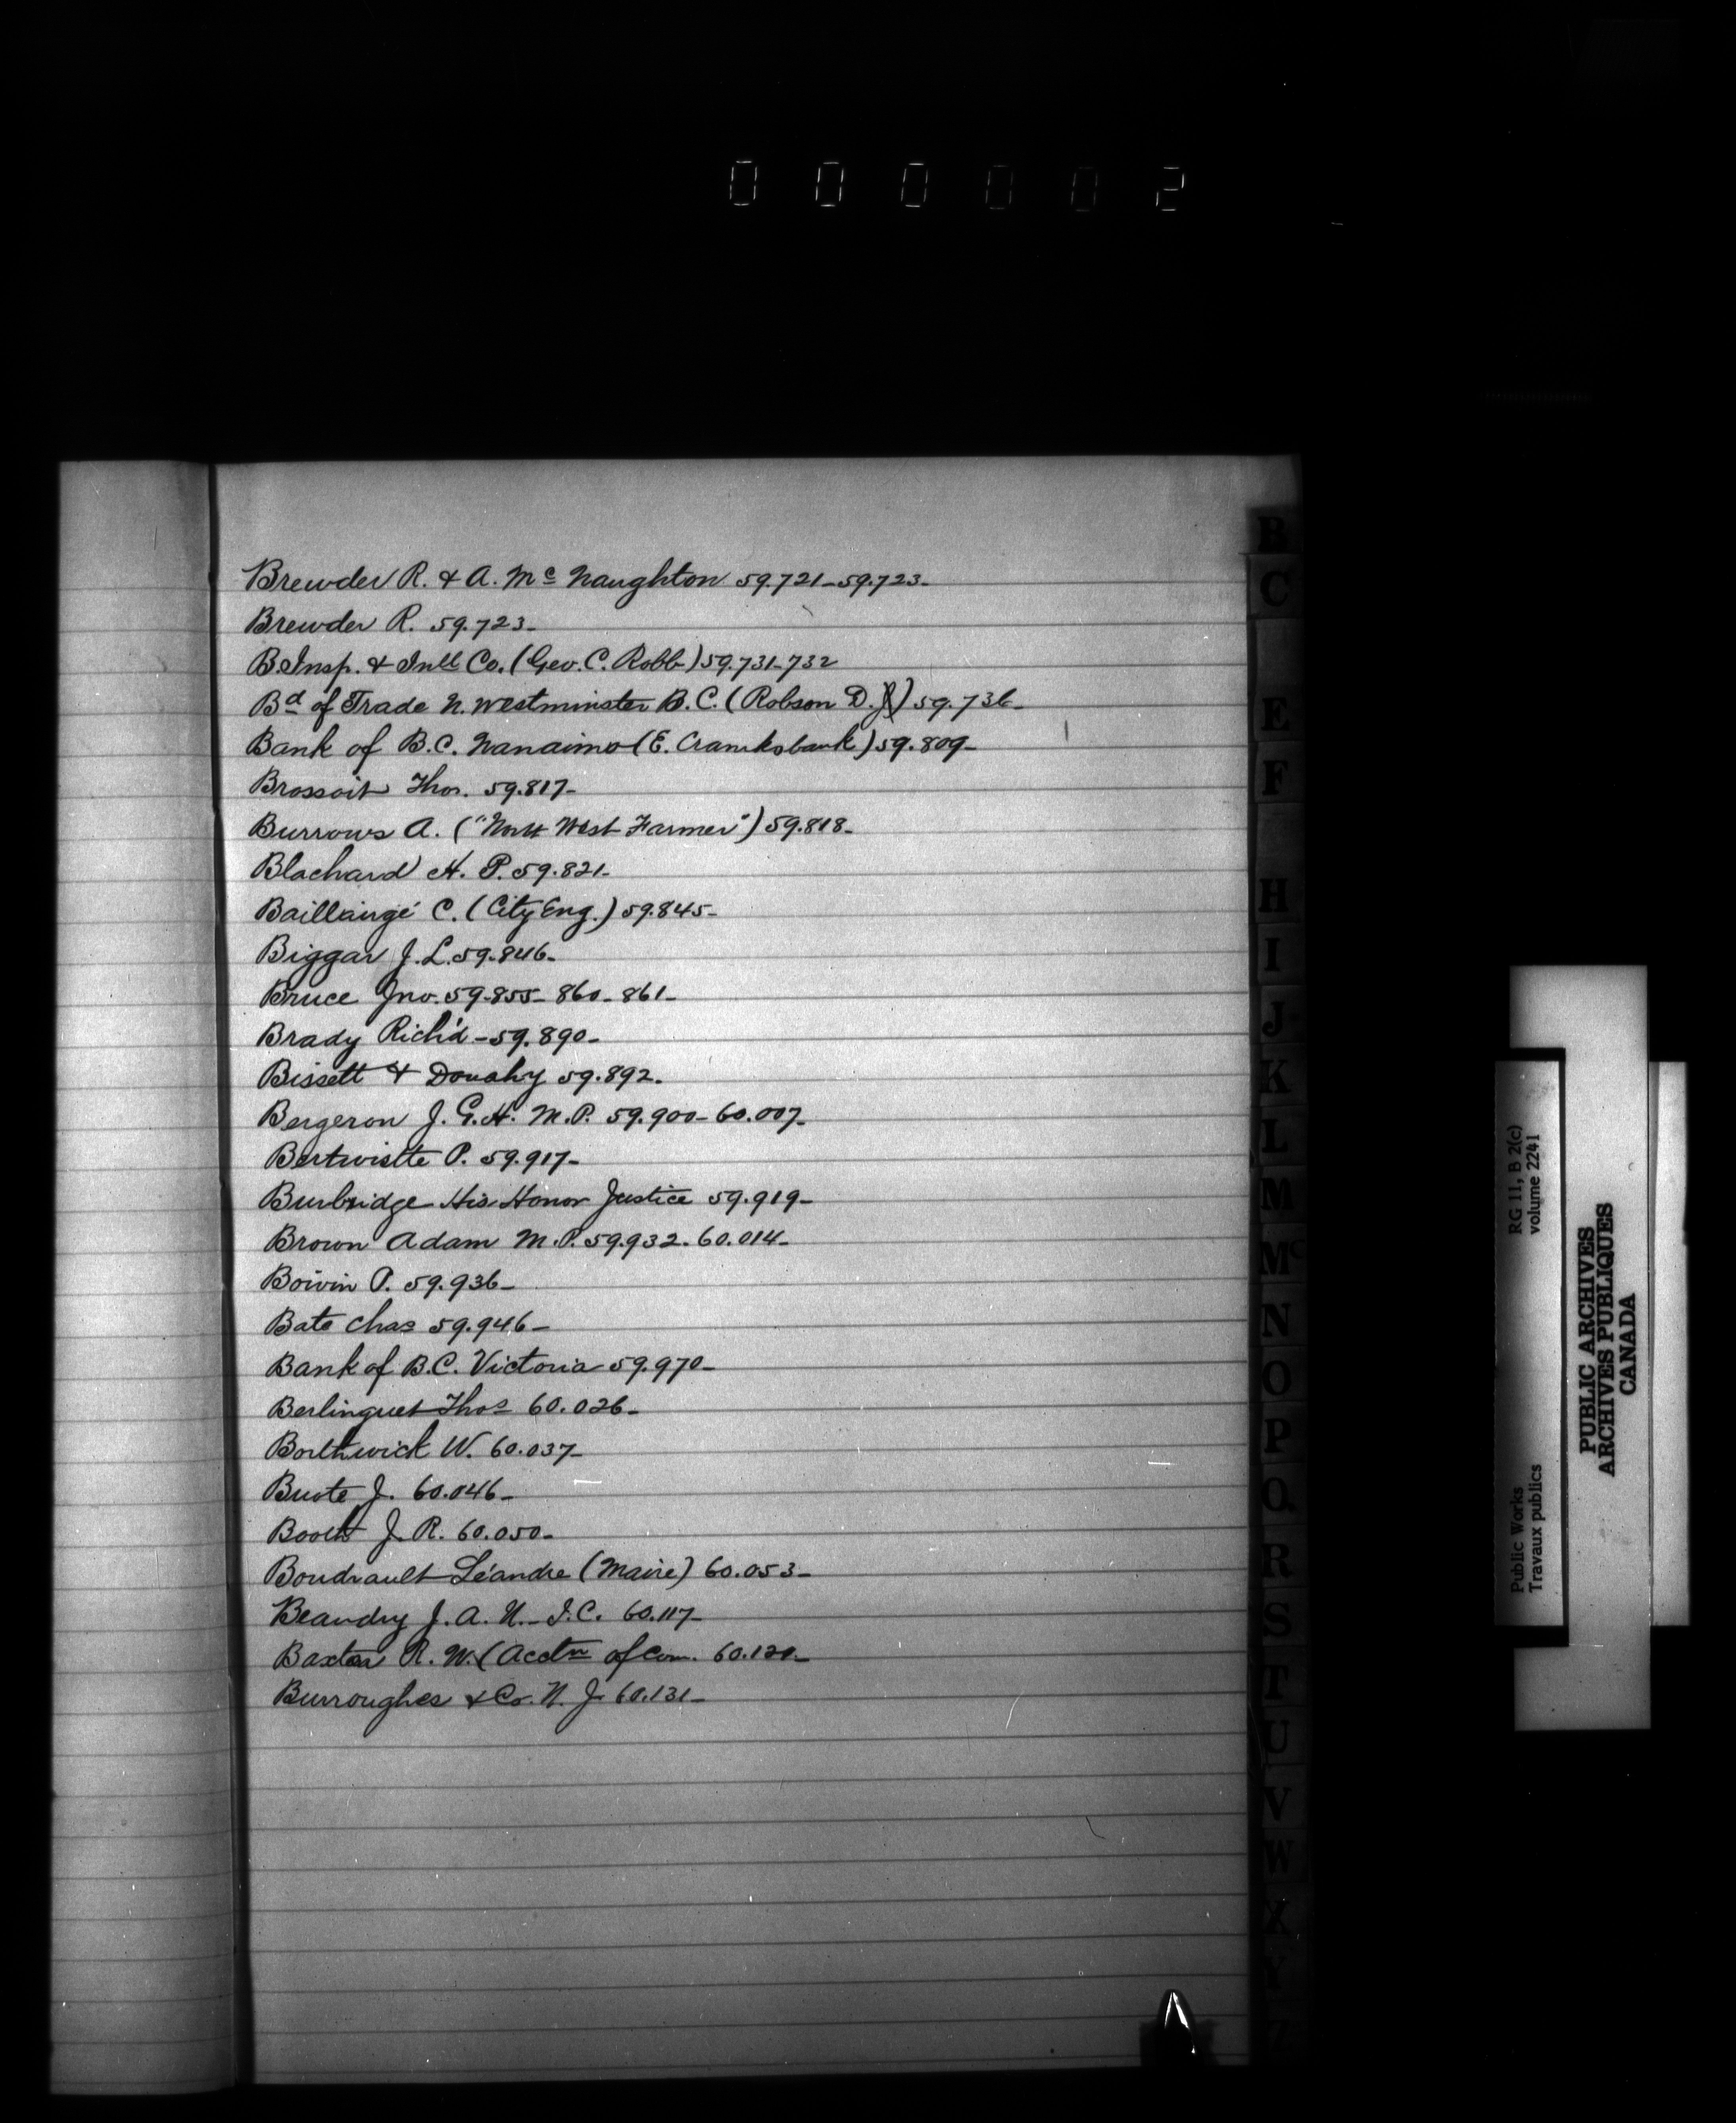 000002
Brewder R. & A. Mc Naughton 59.721-59.723-
Brewder R. 59.723-
B. Insp. & Co. (Geo. C. Robb) 59.731-732
Bd of Trade N. Westminster B.C. (Robson D.) 59.736-
Bank of B.C. Nanaimo (E. Cranksbank) 59.809-
Brossoit Thos. 59.817-
Burrows A. ("North West Farmer") 59.818-
Blachard H. P. 59.821-
Baillairgé C. (City Eng.) 59.845-
Biggar J. L. 59.846-
Bruce Jno. 59.855- 860- 861-
Brady Rich'd - 59.890-
Bissett & Donahy 59.892.
Bergeron J. G. H. M.P. 59.900- 60.007-
Bertwistte P. 59.917-
Burbridge His Honor Justice 59.919-
Brown Adam M.P. 59.932. 60.014-
Boivin P. 59.936-
Bate Chas 59.946-
Bank of B.C. Victoria 59.970-
Berlinguet Thos 60.026-
Borthwick W. 60.037-
Buote J. 60.046-
Booth J. R. 60.050-
Boudrault Léandre (Maire) 60.053-
Beaudry J. A. U. - I.C. 60.117-
Baxter R. W. (Acctn of Com. 60.121-
Burroughes & Co. N. J. 60.131-
B
C
E
F
H
I
J
K
L
M
Mc
N
O
P
Q
R
S
T
U
V
W
X
Y
Z
Public Works RG 11, B 2(c)
Travaux publics volume 2241
PUBLIC ARCHIVES
ARCHIVES PUBLIQUES
CANADA